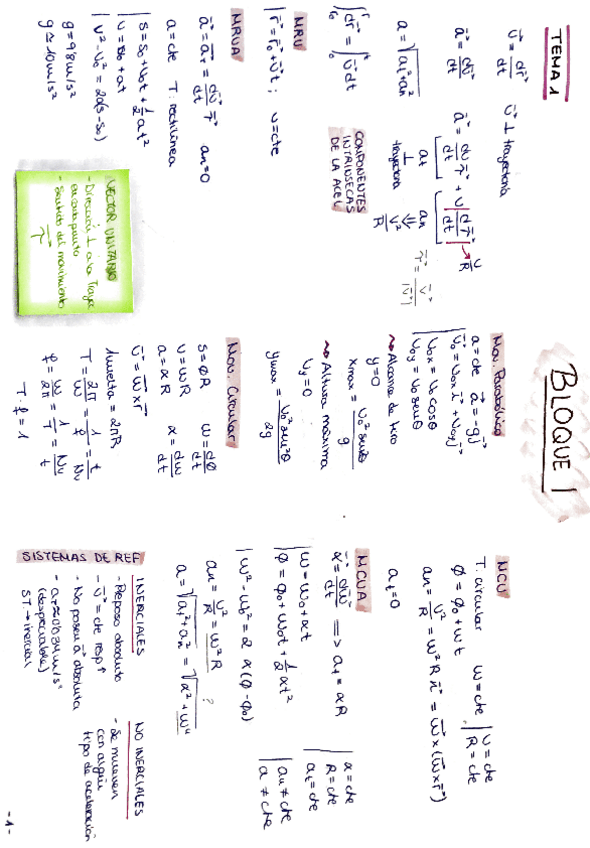 BLOQUE 1
TEMA 1
v⃗ = dr⃗/dt   v⃗ ⊥ trayectoria
a⃗ = dv⃗/dt   a⃗ = dv/dt τ⃗ + v dτ⃗/dt → v/R
at   an   τ⃗ = v⃗/|v⃗|
⊥ trayectoria   v²/R
a = √(at² + an²)
COMPONENTES
INTRINSECAS
DE LA ACEL
∫ dr⃗ = ∫ v⃗ dt
MRU
r⃗ = r⃗0 + v⃗t ; v = cte
MRUA
a⃗ = a⃗τ = dv⃗/dt τ⃗   an = 0
a = cte   T: rectilínea
s = s0 + v0t + 1/2 at²
v = v0 + at
v² - v0² = 2a(s - s0)
g = 9'8 m/s²
g ≈ 10 m/s²
VECTOR UNITARIO
- Dirección: ⊥ a la Traye
en cada punto
- Sentido del movimiento
τ⃗
Mov. Parabólico
a = cte   a⃗ = -gj⃗
v⃗0 = v0x i⃗ + v0y j⃗
v0x = v0 cosθ
v0y = v0 senθ
Alcance de tiro
y = 0
xmax = v0² sen2θ / g
Altura máxima
vy = 0
ymax = v0² sen²θ / 2g
Mov. Circular
s = ϕR   w = dϕ/dt
v = wR
a = αR   α = dw/dt
v⃗ = w⃗ x r⃗
1 vuelta = 2πR
T = 2π/w = 1/f = t/Nv
f = w/2π = 1/T = Nv/t
T · f = 1
MCU
T. circular   w = cte   v = cte
R = cte
ϕ = ϕ0 + wt
an = v²/R = w²R n⃗ = w⃗ x (w⃗ x r⃗)
at = 0
MCUA
α⃗ = dw⃗/dt ⟹ at = αR
w = w0 + αt
ϕ = ϕ0 + w0t + 1/2 αt²
w² - w0² = 2α(ϕ - ϕ0)
α = cte
R = cte
at = cte
an ≠ cte
a ≠ cte
an = v²/R = w²R
a = √(at² + an²) = √(α² + w⁴) ?
SISTEMAS DE REF
INERCIALES
- Reposo absoluto
- v⃗ = cte resp↑
- No poseen a⃗ absoluta
- aT ≈ 0'034 m/s²
(despreciable)
ST → inercial
NO INERCIALES
- Se mueven
con algún
tipo de aceleración
-1-